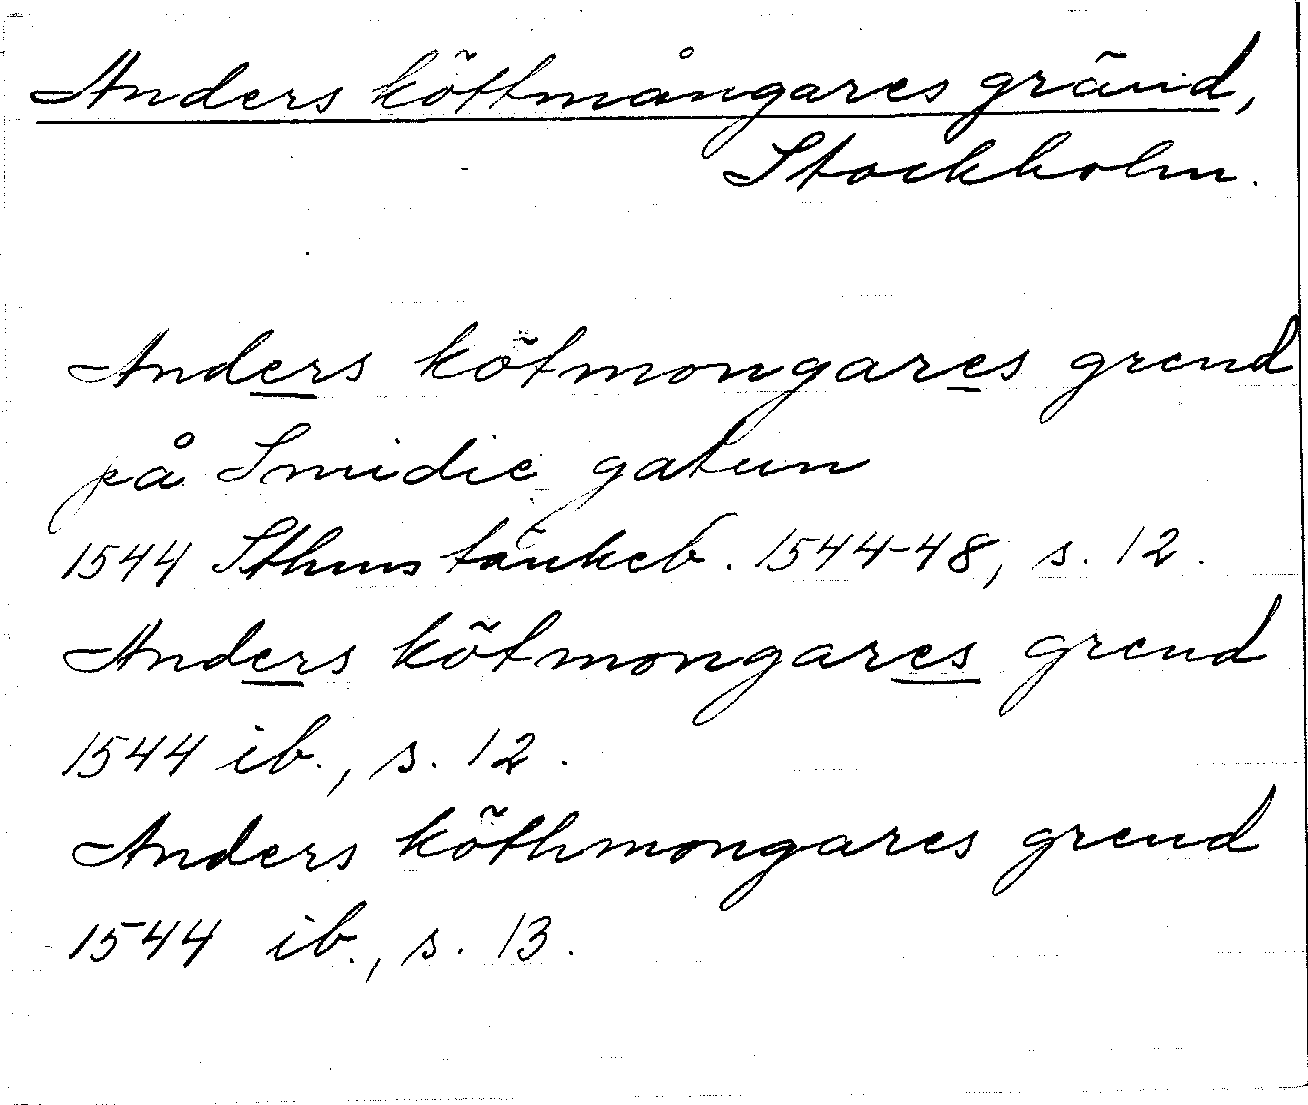 Anders köttmångares gränd,
Stockholm.
Anders kötmongares grend
på Smidie gatun
1544 Sthms tänkeb. 1544-48, s. 12.
Anders kötmongares grend
1544 ib., s. 12.
Anders köthmongares grend
1544 ib., s. 13.